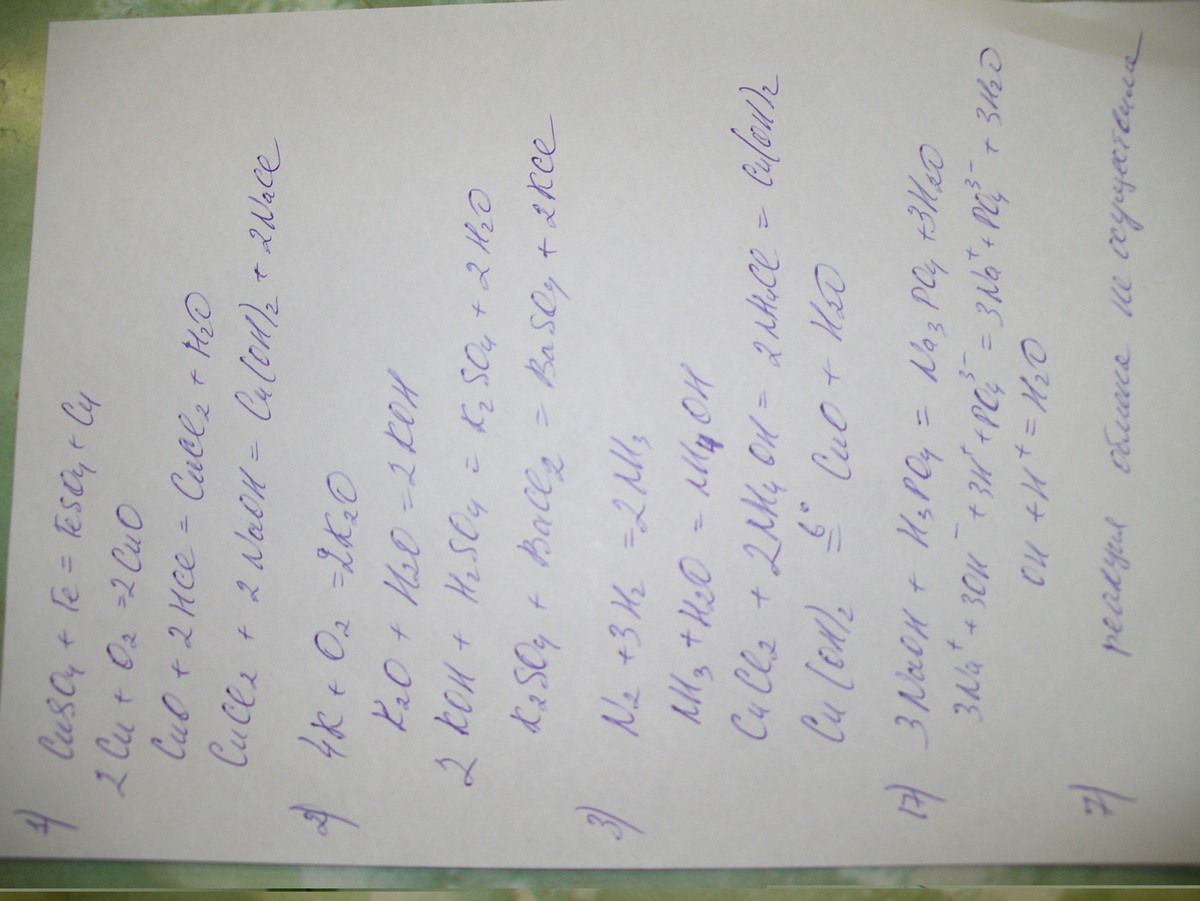 1) CuSO4 + Fe = FeSO4 + Cu
2Cu + O2 = 2CuO
CuO + 2HCl = CuCl2 + H2O
CuCl2 + 2NaOH = Cu(OH)2 + 2NaCl
2) 4K + O2 = 2K2O
K2O + H2O = 2KOH
2KOH + H2SO4 = K2SO4 + 2H2O
K2SO4 + BaCl2 = BaSO4 + 2KCl
3) N2 + 3H2 = 2NH3
NH3 + H2O = NH4OH
CuCl2 + 2NH4OH = 2NH4Cl = Cu(OH)2
Cu(OH)2 = t° CuO + H2O
17) 3NaOH + H3PO4 = Na3PO4 + 3H2O
3Na⁺ + 3OH⁻ + 3H⁺ + PO4³⁻ = 3Na⁺ + PO4³⁻ + 3H2O
OH + H⁺ = H2O
7) реакция обмена не осуществима